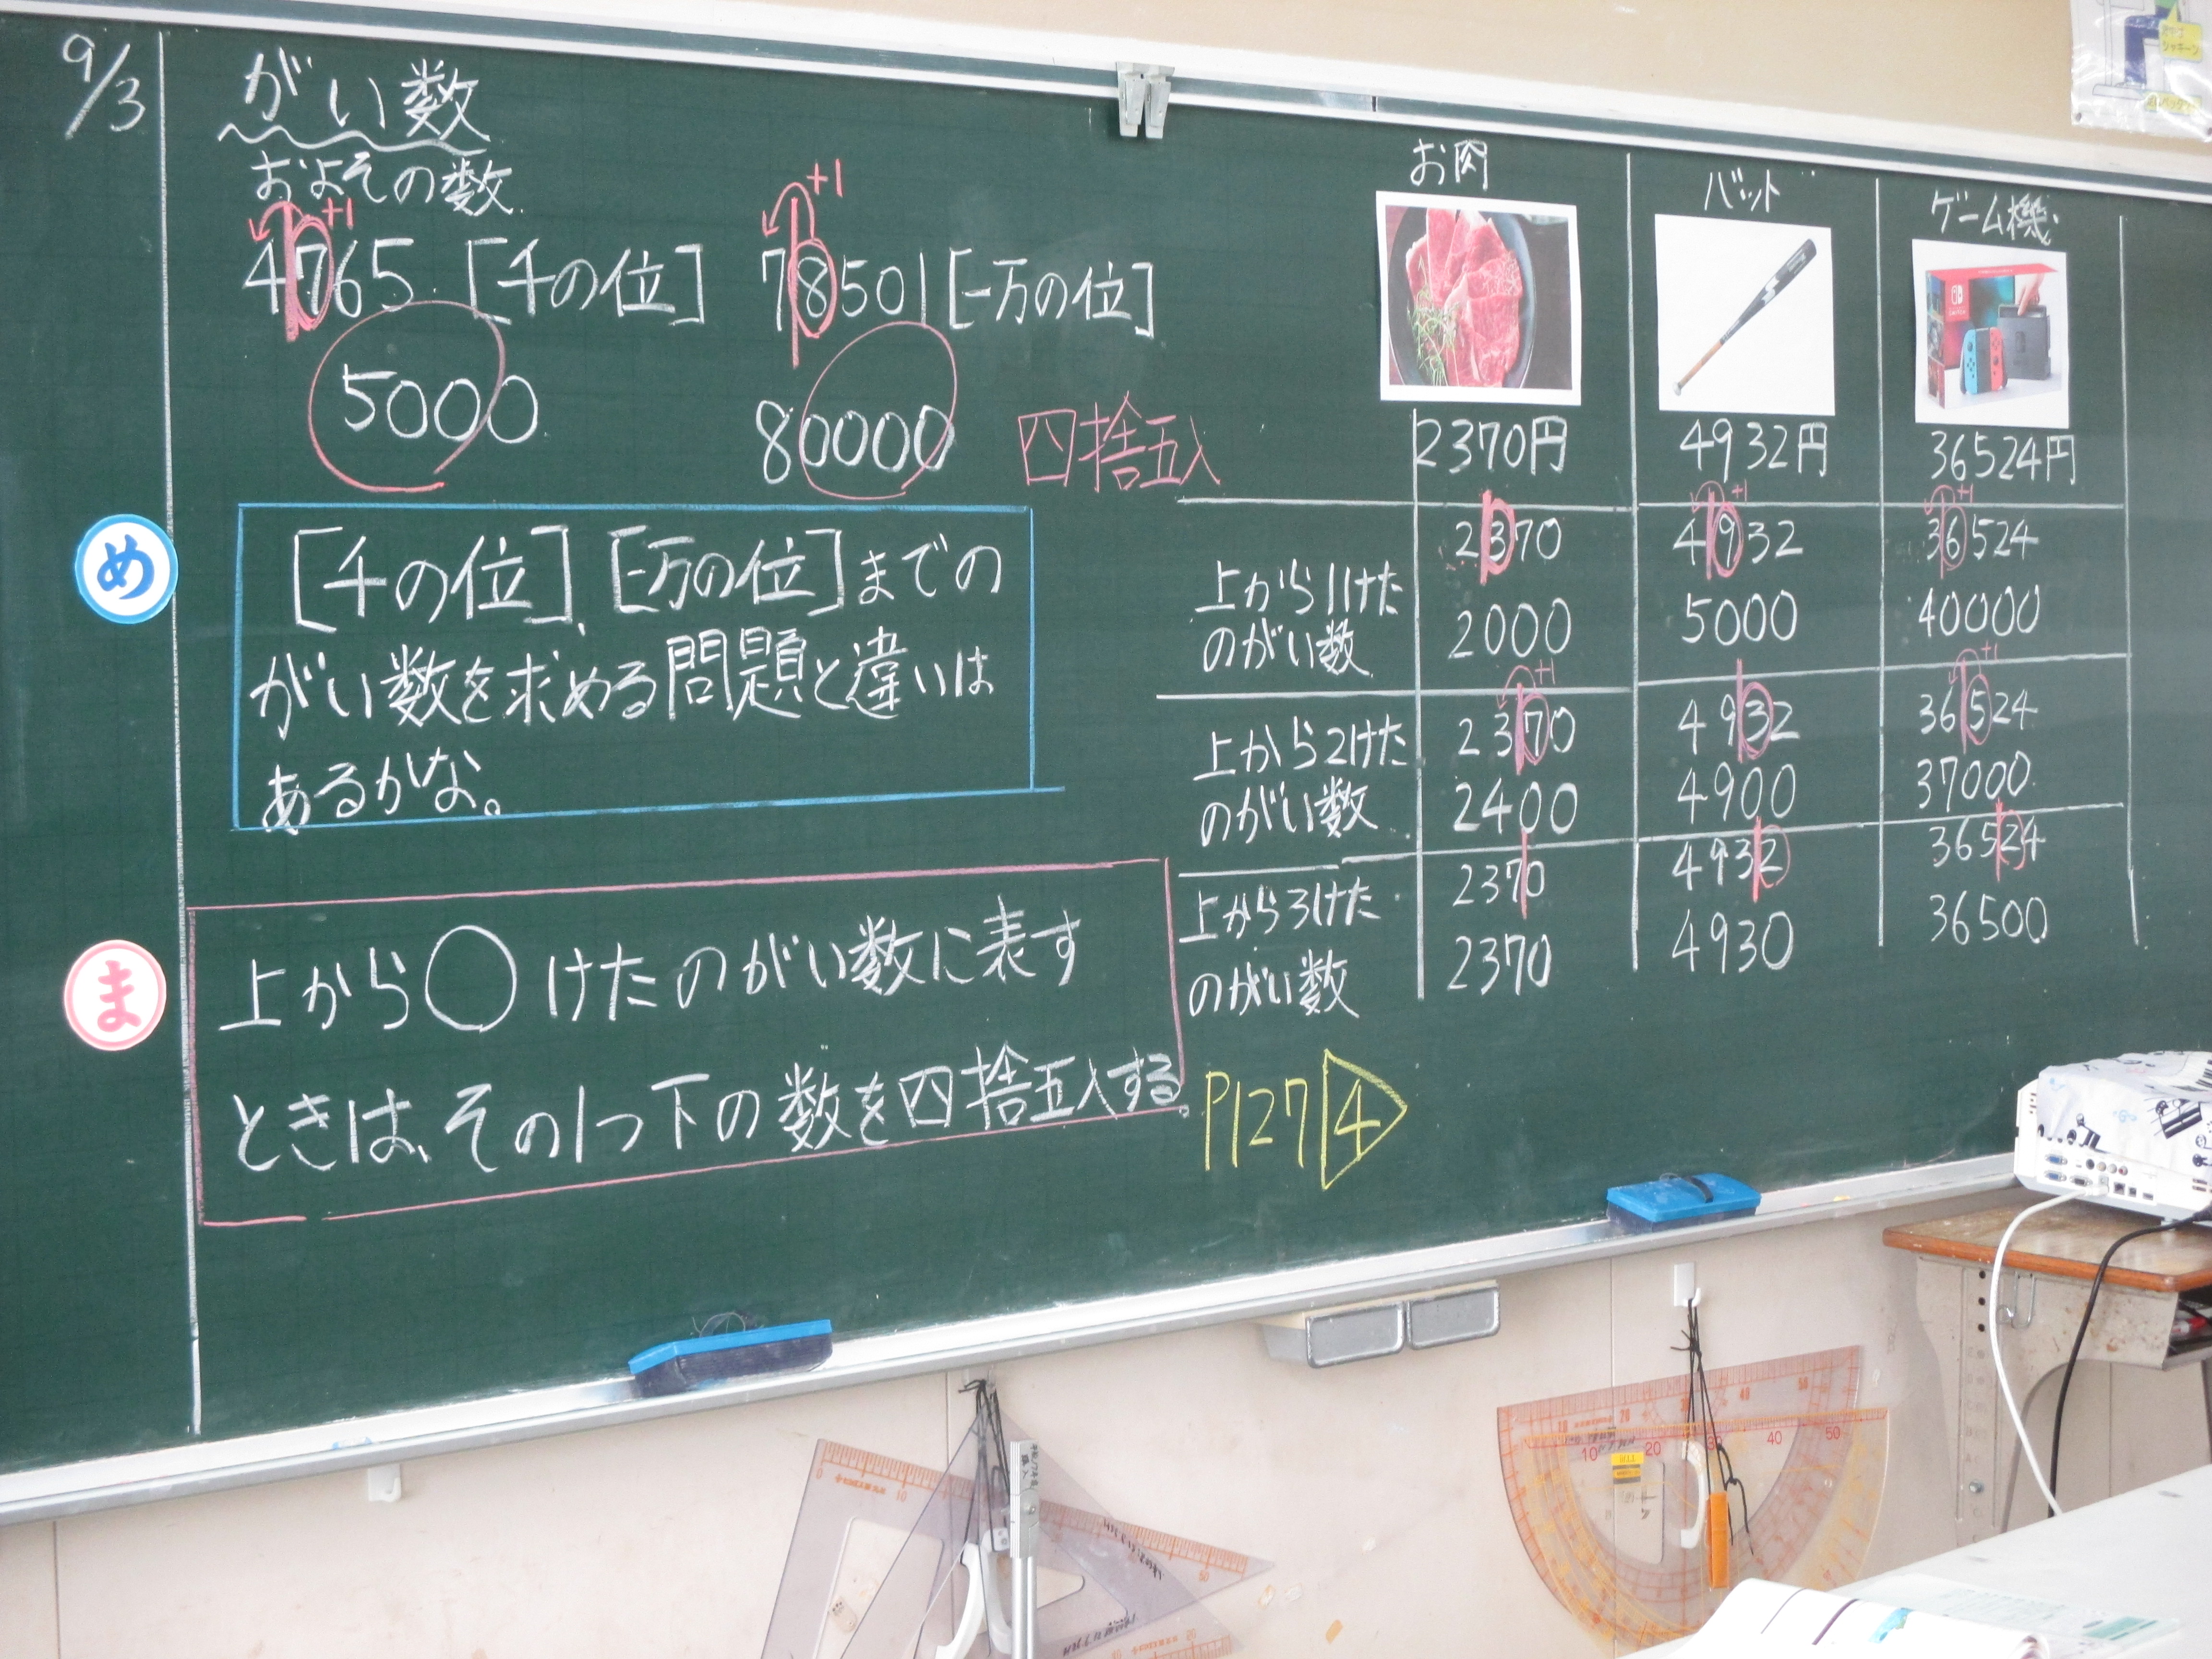 9/3
がい数
およその数
+1
4765 [千の位]
5000
+1
78501 [一万の位]
80000
四捨五入
め
[千の位]、[一万の位]までの
がい数を求める問題と違いは
あるかな。
ま
上から○けたのがい数に表す
ときは、その1つ下の数を四捨五入する。
お肉
バット
ゲーム機
2370円
4932円
36524円
上から1けた
のがい数
2370
2000
+1
4932
5000
+1
36524
40000
上から2けた
のがい数
+1
2370
2400
4932
4900
+1
36524
37000
上から3けた
のがい数
2370
2370
4932
4930
36524
36500
P127 4